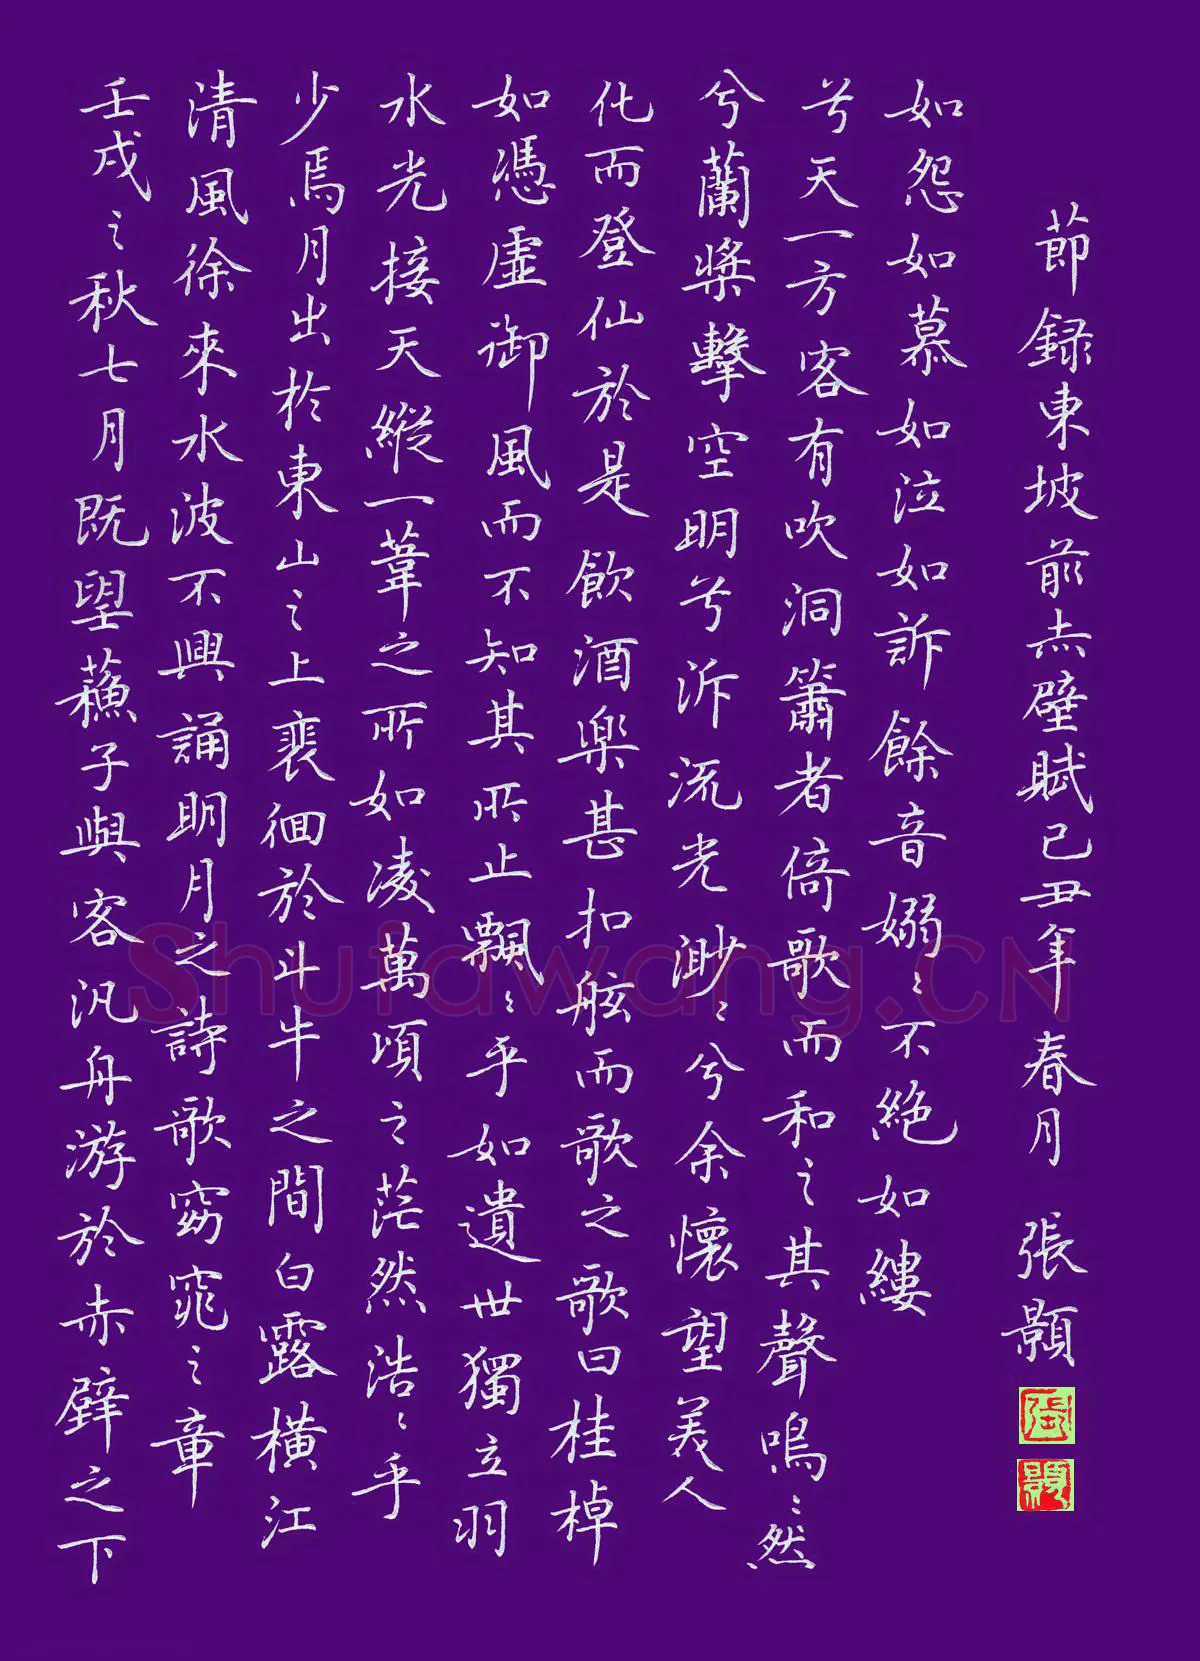 壬戌之秋七月既朢蘓子與客汎舟游於赤壁之下
清風徐來水波不興誦明月之詩歌窈窕之章
少焉月出於東山之上裵徊於斗牛之間白露橫江
水光接天縱一葦之所如凌萬頃之茫然浩〻乎
如憑虛御風而不知其所止飄〻乎如遺世獨立羽
化而登仙於是飲酒樂甚扣舷而歌之歌曰桂棹
兮蘭槳擊空明兮泝流光渺〻兮余懷望美人
兮天一方客有吹洞簫者倚歌而和之其聲嗚〻然
如怨如慕如泣如訴餘音嫋〻不絕如縷
節録東坡前赤壁賦己丑年春月 張顥
Shufawang.CN